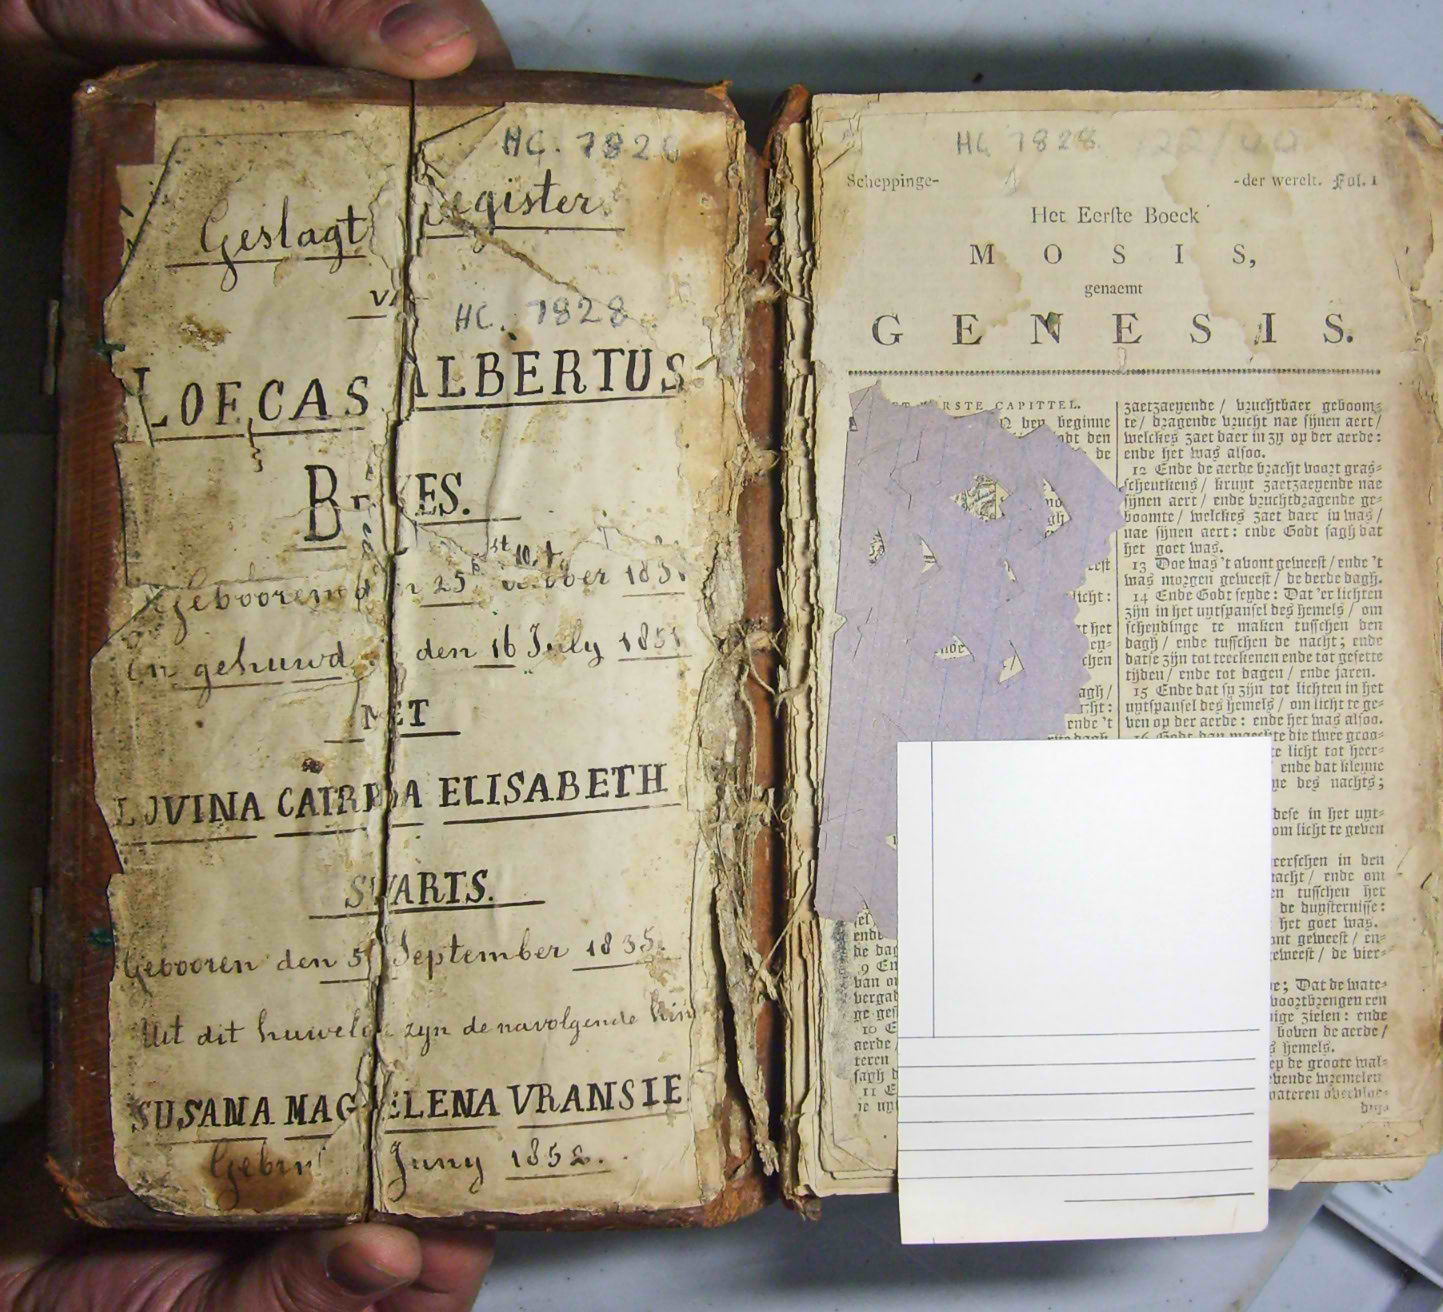 HC. 7828
Geslagt Register
HC. 7828
LOECAS ALBERTUS
BRITS.
Gebooren den 25st October
En gehuwd den 16 July 1851
MET
LOVINA CATRINA ELISABETH
SWARTS.
Gebooren den 5 September 1835.
Uit dit huwelik zyn de navolgende
SUSANA MAGDELENA VRANSIE
Juny 1852.
HC 7828 122/40
Scheppinge- -der werelt. Fol. 1
Het Eerste Boeck
MOSIS,
genaemt
GENESIS.
EERSTE CAPITTEL.
den beginne
den
de
licht:
het
chen
agh/
ende 't
ende
de dag
9 En
van
vergad
ge-gesi
10 E
aerde
teren
sagh d
11 E
zaetzaeyende / vruchtbaer geboom-
te / dragende vrucht nae sijnen aert /
welckes zaet daer in zy op der aerde:
ende het was alsoo.
12 Ende de aerde bracht voort gras-
scheutkens / kruyt zaetzaeyende nae
sijnen aert / ende vruchtdragende ge-
boomte / welckes zaet daer in was /
nae sijnen aert: ende Godt sagh dat
het goet was.
13 Doe was 't avont geweest / ende 't
was morgen geweest / de derde dagh.
14 Ende Godt seyde: Dat 'er lichten
zijn in het uytspansel des hemels / om
scheydinge te maken tusschen den
dagh / ende tusschen de nacht; ende
datse zijn tot teeckenen ende tot gesette
tijden / ende tot dagen / ende jaren.
15 Ende dat sy zijn tot lichten in het
uytspansel des hemels / om licht te ge-
ven op der aerde: ende het was alsoo.
16 Godt dan maeckte die twee groo-
te licht tot heer-
ende dat kleyne
des nachts;
dese in het uyt-
om licht te geven
heerschen in den
nacht / ende om
tusschen het
de duysternisse:
het goet was.
avont geweest / en-
geweest / de vier-
Dat de wate-
voortbrengen een
zielen: ende
boven de aerde /
hemels.
de groote wal-
levende wremelen
wateren overvloe-